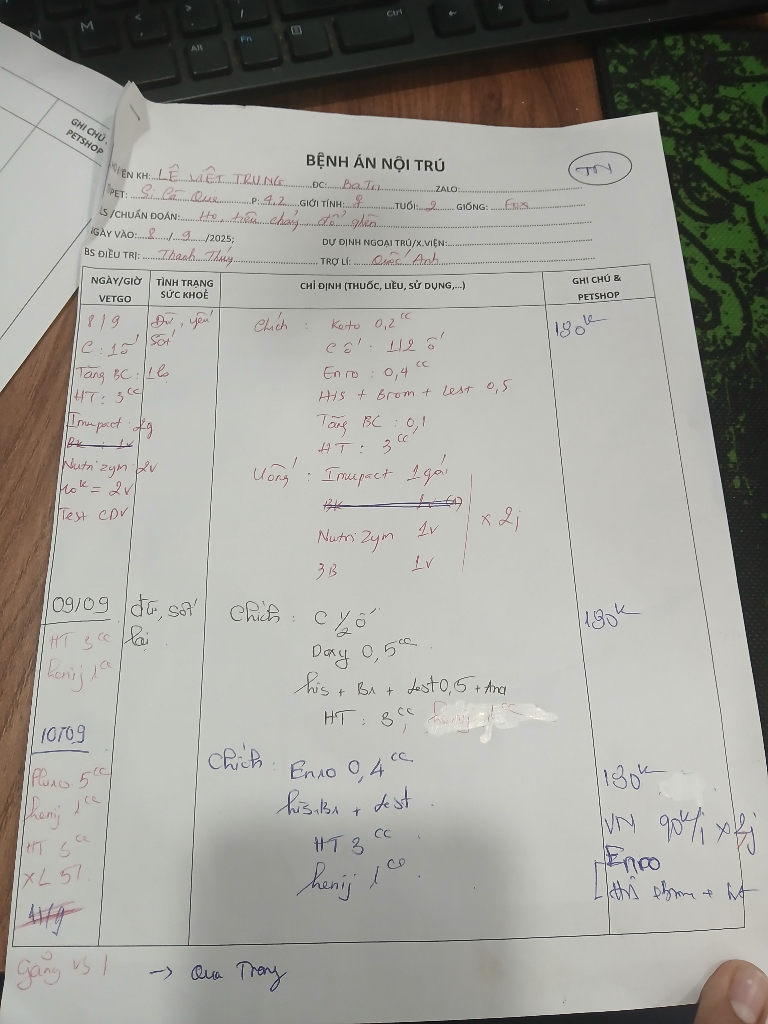 GHI CHÚ
PETSHOP
BỆNH ÁN NỘI TRÚ
TN
TÊN KH: LÊ VIẾT TRUNG ĐC: Ba Tri ZALO:
PET: P: 4,2 GIỚI TÍNH: TUỔI: 2 GIỐNG: Fox
LS/CHUẨN ĐOÁN: Ho, tiêu chảy, đổ ghèn
NGÀY VÀO: 8 / 9 /2025; DỰ ĐỊNH NGOẠI TRÚ/X.VIỆN:
BS ĐIỀU TRỊ: Thanh Thúy TRỢ LÍ: Quốc Anh
NGÀY/GIỜ VETGO
TÌNH TRẠNG SỨC KHOẺ
CHỈ ĐỊNH (THUỐC, LIỀU, SỬ DỤNG,...)
GHI CHÚ & PETSHOP
8/9
C: 1ố
Tăng BC: 1lọ
HT: 3cc
Imupact 2g
Nutrizym 2v
10k = 2v
Test CDV
Đừ, yếu
Sốt
Chích: Keto 0,2cc
C ố: 1/2 ố
Enro: 0,4cc
His + Brom + Dest 0,5
Tăng BC: 0,1
HT: 3cc
Uống: Imupact 1gói
Nutrizym 1v
3B 1v
x 2j
130k
09/09
HT 3cc
henij 1cc
đừ, sốt
lại
Chích: C 1/2 ố
Doxy 0,5cc
his + Br + dest 0,5 + Ana
HT: 3cc
130k
10/09
5cc
henij 1cc
HT 3cc
XL 5T
11/9
Chích: Enro 0,4cc
his+Br + dest
HT 3cc
henij 1cc
130k
VN 90k/j x 2j
Enro
His + Brom +
Găng vs 1 → Qua Trong